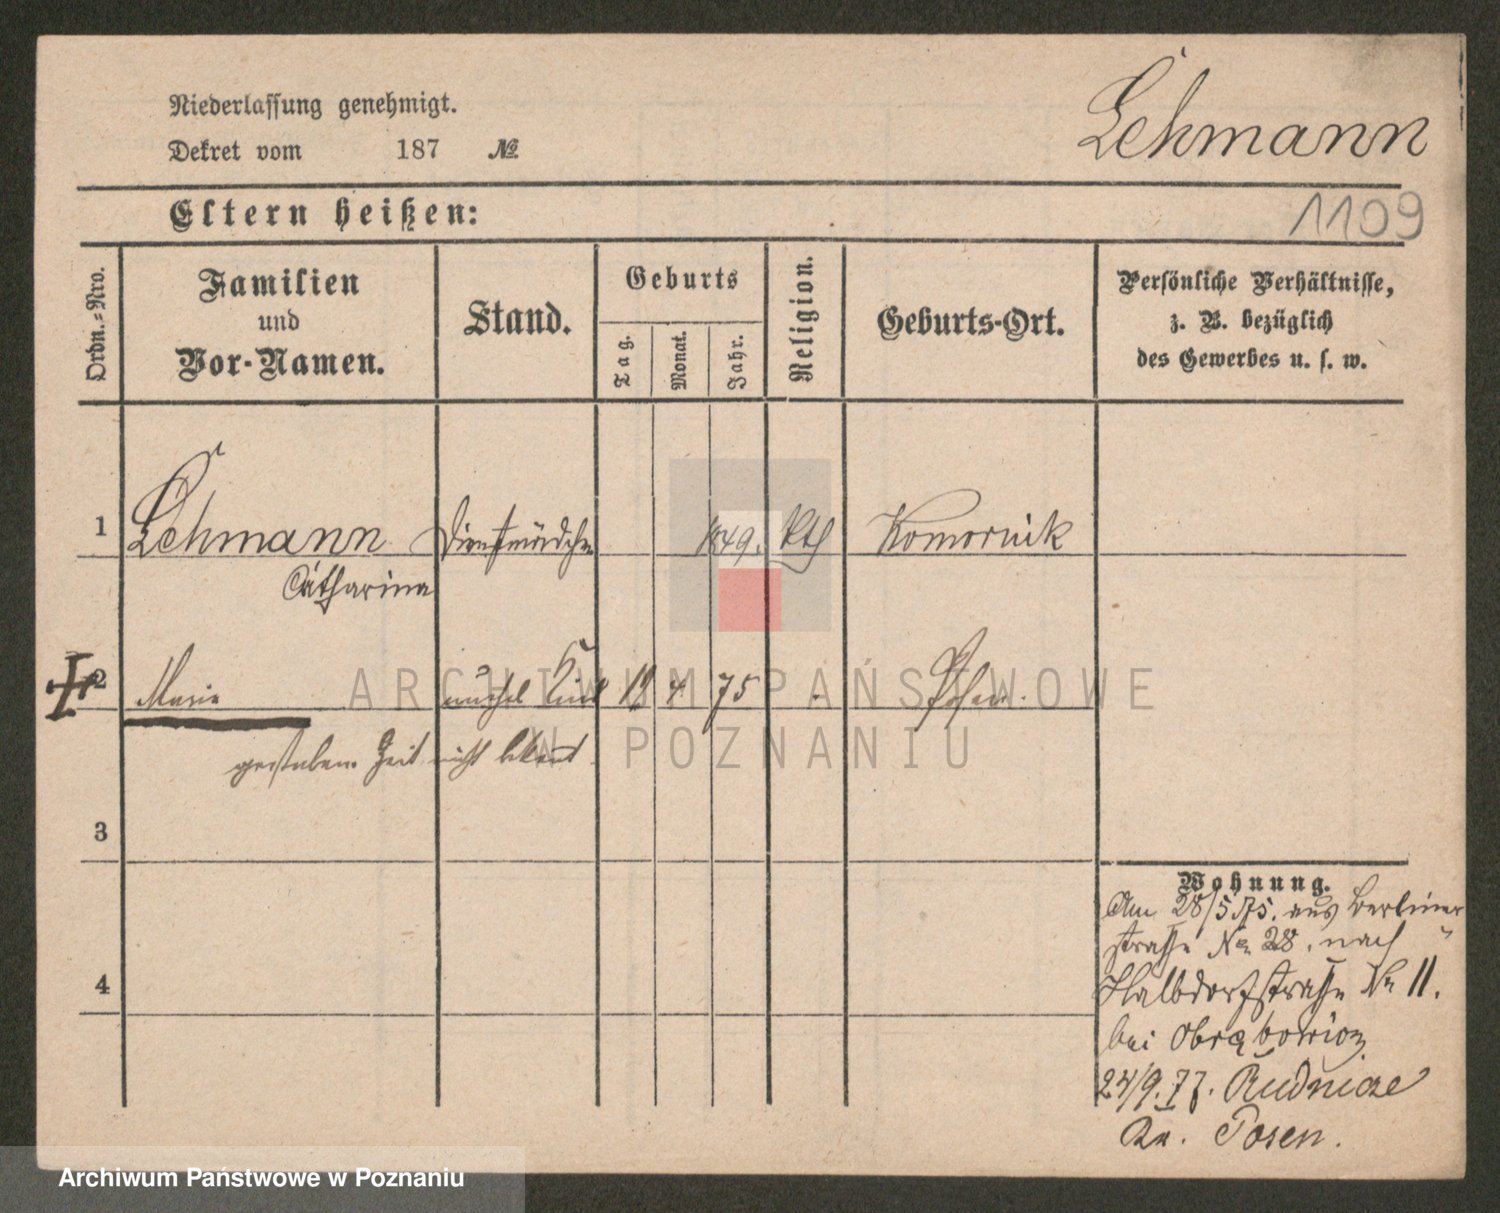 Lehmann
Niederlassung genehmigt.
Dekret vom 187 №
1109
Eltern heißen:
Ordn.-Nro.
Familien
und
Vor-Namen.
Stand.
Geburts
Tag.
Monat.
Jahr.
Religion.
Geburts-Ort.
Persönliche Verhältnisse,
z. B. bezüglich
des Gewerbes u. s. w.
1 Lehmann Dienstmädchen 1849. Kth Komornik
Catharina
2 Marie unehel Kind 4 75 Posen.
gestorben. Zeit nicht bekant
3
4
Wohnung.
Am 28/5 75. aus Berliner
strasse No 28. nach
Halbdorfstrasse No 11.
bei Obrąbowicz
24/9. 77. Rudnicze
Kr. Posen.
ARCHIWUM PAŃSTWOWE
W POZNANIU
Archiwum Państwowe w Poznaniu